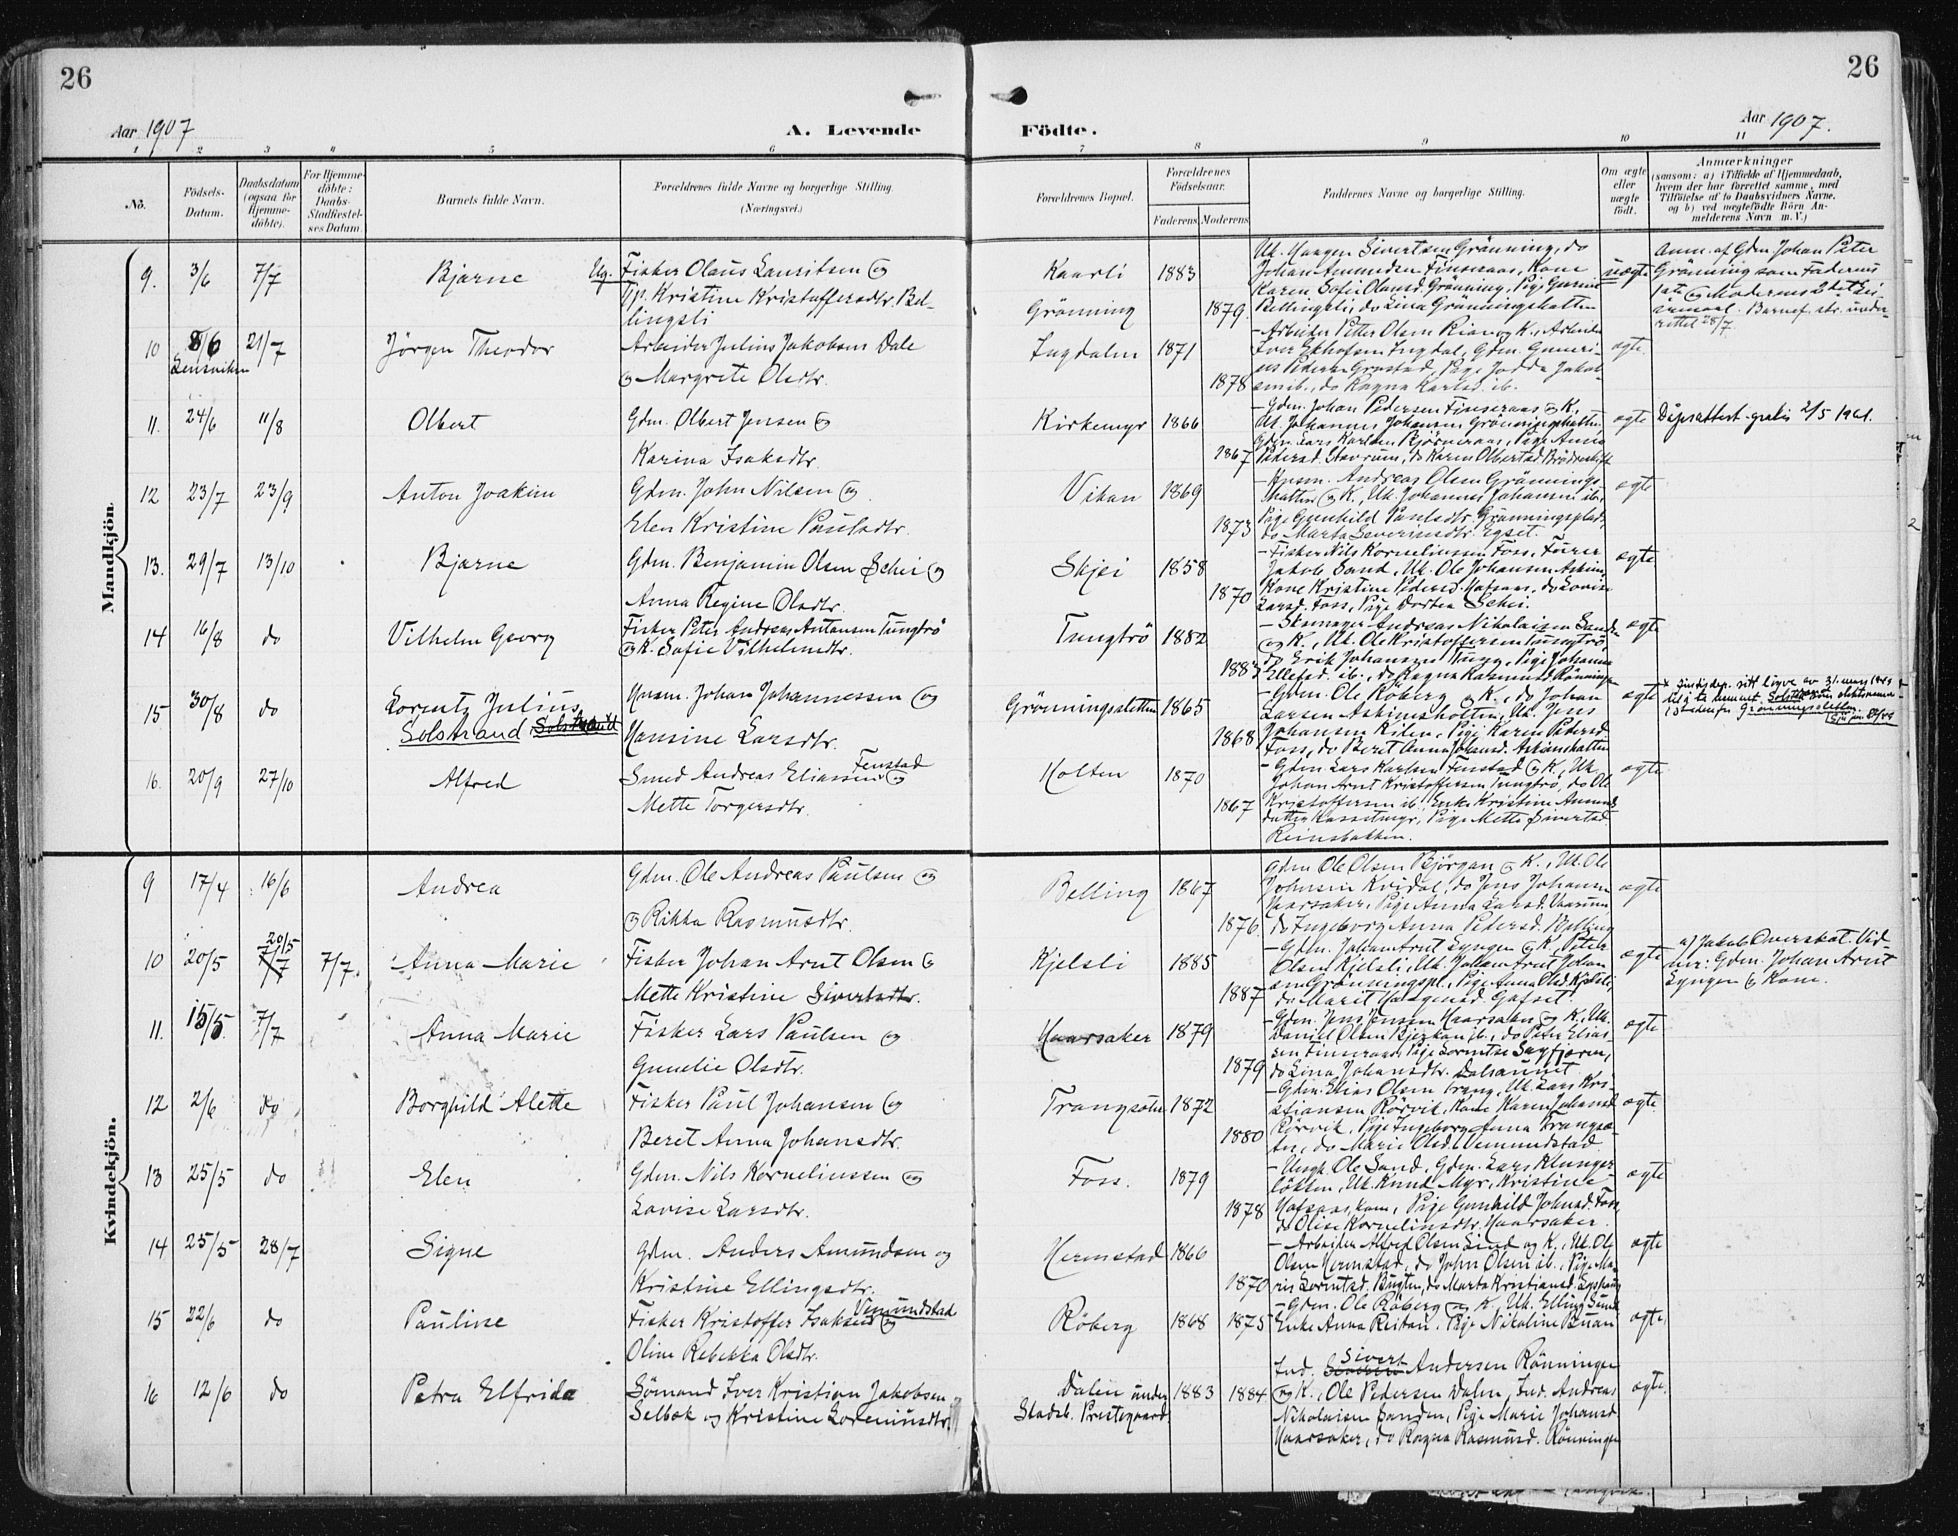 26
26
Aar 1907
A. Levende
Födte.
Aar 1907.
1 2 3 4 5 6 7 8 9 10 11
No.
Födsels-Datum.
Daabsdatum (ogsaa for Hjemmedöbte).
For Hjemmedöbte: Daabs-Stadfæstelses Datum.
Barnets fulde Navn.
Forældrenes fulde Navne og borgerlige Stilling.
(Næringsvei.)
Forældrenes Bopæl.
Forældrenes Födselsaar.
Faderens Moderens
Faddernes Navne og borgerlige Stilling.
Om ægte eller uægte født.
Anmærkninger
(saasom: a) i Tilfælde af Hjemmedaab, hvem der har forrettet samme, med Tilföielse af to Daabsvidners Navne, og b) ved uægtefödte Börn Anmelderens Navn m. V.)
Mandkjön.
9. 3/6 7/7 Bjarne Ug. Fisker Olaus Lauritsen og
Pp. Kristine Kristoffersdtr. Bel-
lingsli
Kaarli 1883
Grönning 1879.
Uk. Haagen Sivertsen Grönning, do
Johan Amundsen Finseraas, Kone
Karen Sofie Olausd. Grönning, Pige Gurine
Bellingsli, do Lina Grönningshatten
uægte
Anm. af Gdm Johan Peter
Grönning som Faderens
1ste og Moderens 2det Lei-
ermaal. Barnef. str. under-
rettet 28/7.
10 8/6 21/7 Jörgen Theodor Arbeider Julius Jakobsen Dale
Lensviken
og Margrete Olsdtr.
Ingdalen 1871
1878
- Arbeider Petter Olsen Rian og K., Arbeider
ægte
11. 24/6 11/8 Olbert Gdm. Olbert Jensen og
Karina Isaksdtr.
Kirkemyr 1866
1867
- Gdm. Johan Pedersen Finseraas og K.,
Uk. Johannes Johansen Grönningshatten,
Gdm. Lars Karlsen Björneraas, Pige Anna
Pedersd. Stavrum, do Karen Olbertsd
ægte
Dåpsattest gratis 2/5 1961.
12 23/7 23/9 Anton Joakim Gdm. John Nilsen og
Elen Kristine Paulsdtr.
Vikan 1869
1873
- Husm. Andreas Olsen Grönnings-
hatten og K., Uk. Johannes Johansen ib.,
Pige Gunhild Paulsdtr. Grönningsplads,
do Marta Severinsdtr. Egset.
ægte
13. 29/7 13/10 Bjarne Gdm. Benjamin Olsen Schei og
Anna Regine Olsdtr.
Skjei 1858
1870
- Fisker Nils Korneliussen Foss, Furer
Jakob Sand, Uk. Ole Johansen Askim,
Kone Kristine Pedersd. Hofsaas, do Lovise
Larsd. Foss, Pige Dortea Schei.
ægte
14 16/8 do Vilhelm Georg Fisker Peter Andreas Antonsen Tungtrö
og K. Sofie Vilhelmsdtr.
Tungtrö 1882
1883
- Skomager Andreas Nikolaisen Sanden
og K., Uk. Ole Kristoffersen Tungtrö,
do Erik Johansen Tung, Pige Johanna
Ellefsd. ib., do Ragna Rasmusd Rönningen
ægte
15 30/8 do Lorentz Julius
Solstrand Solstrand
Husm. Johan Johannessen og
Hansine Larsdtr.
Grönningsletten 1865
1868
- Gdm. Ole Röberg og K., do Johan
Larsen Askimsholten, Uk. Jens
Johansen Kiden, Pige Karen Petersd
Foss, do Beret Anna Johansd. Askimshatten
ægte
16. 20/9 27/10 Alfred Smed Andreas Eliassen Fenstad og
Mette Torgersdtr.
Holten 1870
1867
- Gdm. Lars Karlsen Fenstad og K., Uk
Johan Arnt Kristoffersen Tungtrö, do Ole
Kristoffersen ib., Enke Kristine Amunds
datter Kassetmyr, Pige Mette Sivertsd.
Reinsbakken.
ægte
Kvindekjön.
9 17/4 16/6 Andrea Gdm. Ole Andreas Paulsen og
og Rikka Rasmusdtr.
Belling 1867
1876.
Gdm Ole Olsen Björgan og K., Uk. Ole
Johnsen Kvidal, do Jens Johansen
Haarsaker, Pige Anna Larsd.
do Ingeborg Anna Pedersd. Belling
ægte
10 20/5 20/5 7/7 7/7. Anna Marie Fisker Johan Arnt Olsen og
Mette Kristine Sivertsdtr.
Kjelsli 1885
1887
- Gdm. Johan Arnt Lyngen og K., Peter
Olsen Kjelsli, Uk. Johan Arnt Johan
sen Grönningspl., Pige Anna Olsd. Kjelsli,
do Marit
ægte
a) Jakob Overskot. Vid-
ner: Gdm. Johan Arnt
Lyngen og Kone.
11. 15/5. 7/7 Anna Marie Fisker Lars Paulsen og
Gunelie Olsdtr.
Haarsaker 1879
1879
- Gdm. Jens Jensen Haarsaker og K., Uk.
Daniel Olsen ib., do Peter Elias-
sen Finseraas, Pige Lorentse Sagfjæren,
do Lina Johansdtr. Dalsaunet.
ægte
12 2/6 do Borghild Alette Fisker Paul Johansen og
Beret Anna Johansdtr.
Trangsölen 1872
1880
- Gdm. Elias Olsen Trang, Uk. Lars Kri-
stiansen Rörvik, Kone Karen Johansd
Rörvik, Pige Ingeborg Anna Trangsö-
len, do Marie Olsd. Vemundstad
ægte
13 25/5 do Elen Gdm. Nils Korneliussen og
Lovise Larsdtr.
Foss. 1879
1878
- Ungk. Ole Sand, Gdm. Lars Klunger-
lökken, Uk. Knud Myr, Kristine
Hofsaas kone, Pige Gunhild Johnsd. Foss
do Olise Korneliusdtr. Haarsaker.
ægte
14 25/5 28/7 Signe Gdm. Anders Amundsen og
Kristine Ellingsdtr.
Hermstad 1866
1870
- Arbeider Alfred Olsen Lund og K., Uk. Ole
Olsen Hermstad, do John Olsen ib., Pige Ma-
rie Lorentsd. Bugten, do Marta Kristiansd.
ægte
15 22/6 do Pauline Fisker Kristoffer Isaksen Vemundstad og
Oline Rebekka Olsdtr.
Röberg 1868 1875
- Gdm. Ole Röberg og K., Uk. Elling Sund
Enke Anna Reitan. Pige Nikoline Buan
ægte.
16 12/6 do Petra Elfrida Sömand Iver Kristian Jakobsen
Selbek og Kristine Loreniusdtr.
Dalen under
Stadsb. Prestegaard
1883 1884
Ind. Sivert Andersen Rönningen
og K., Ole Pedersen Dalen, Ind. Andreas
Nikolaisen Sanden, Pige Marie Johansd.
Haarsaker, do Ragna Rasmusd. Rönningen
ægte.